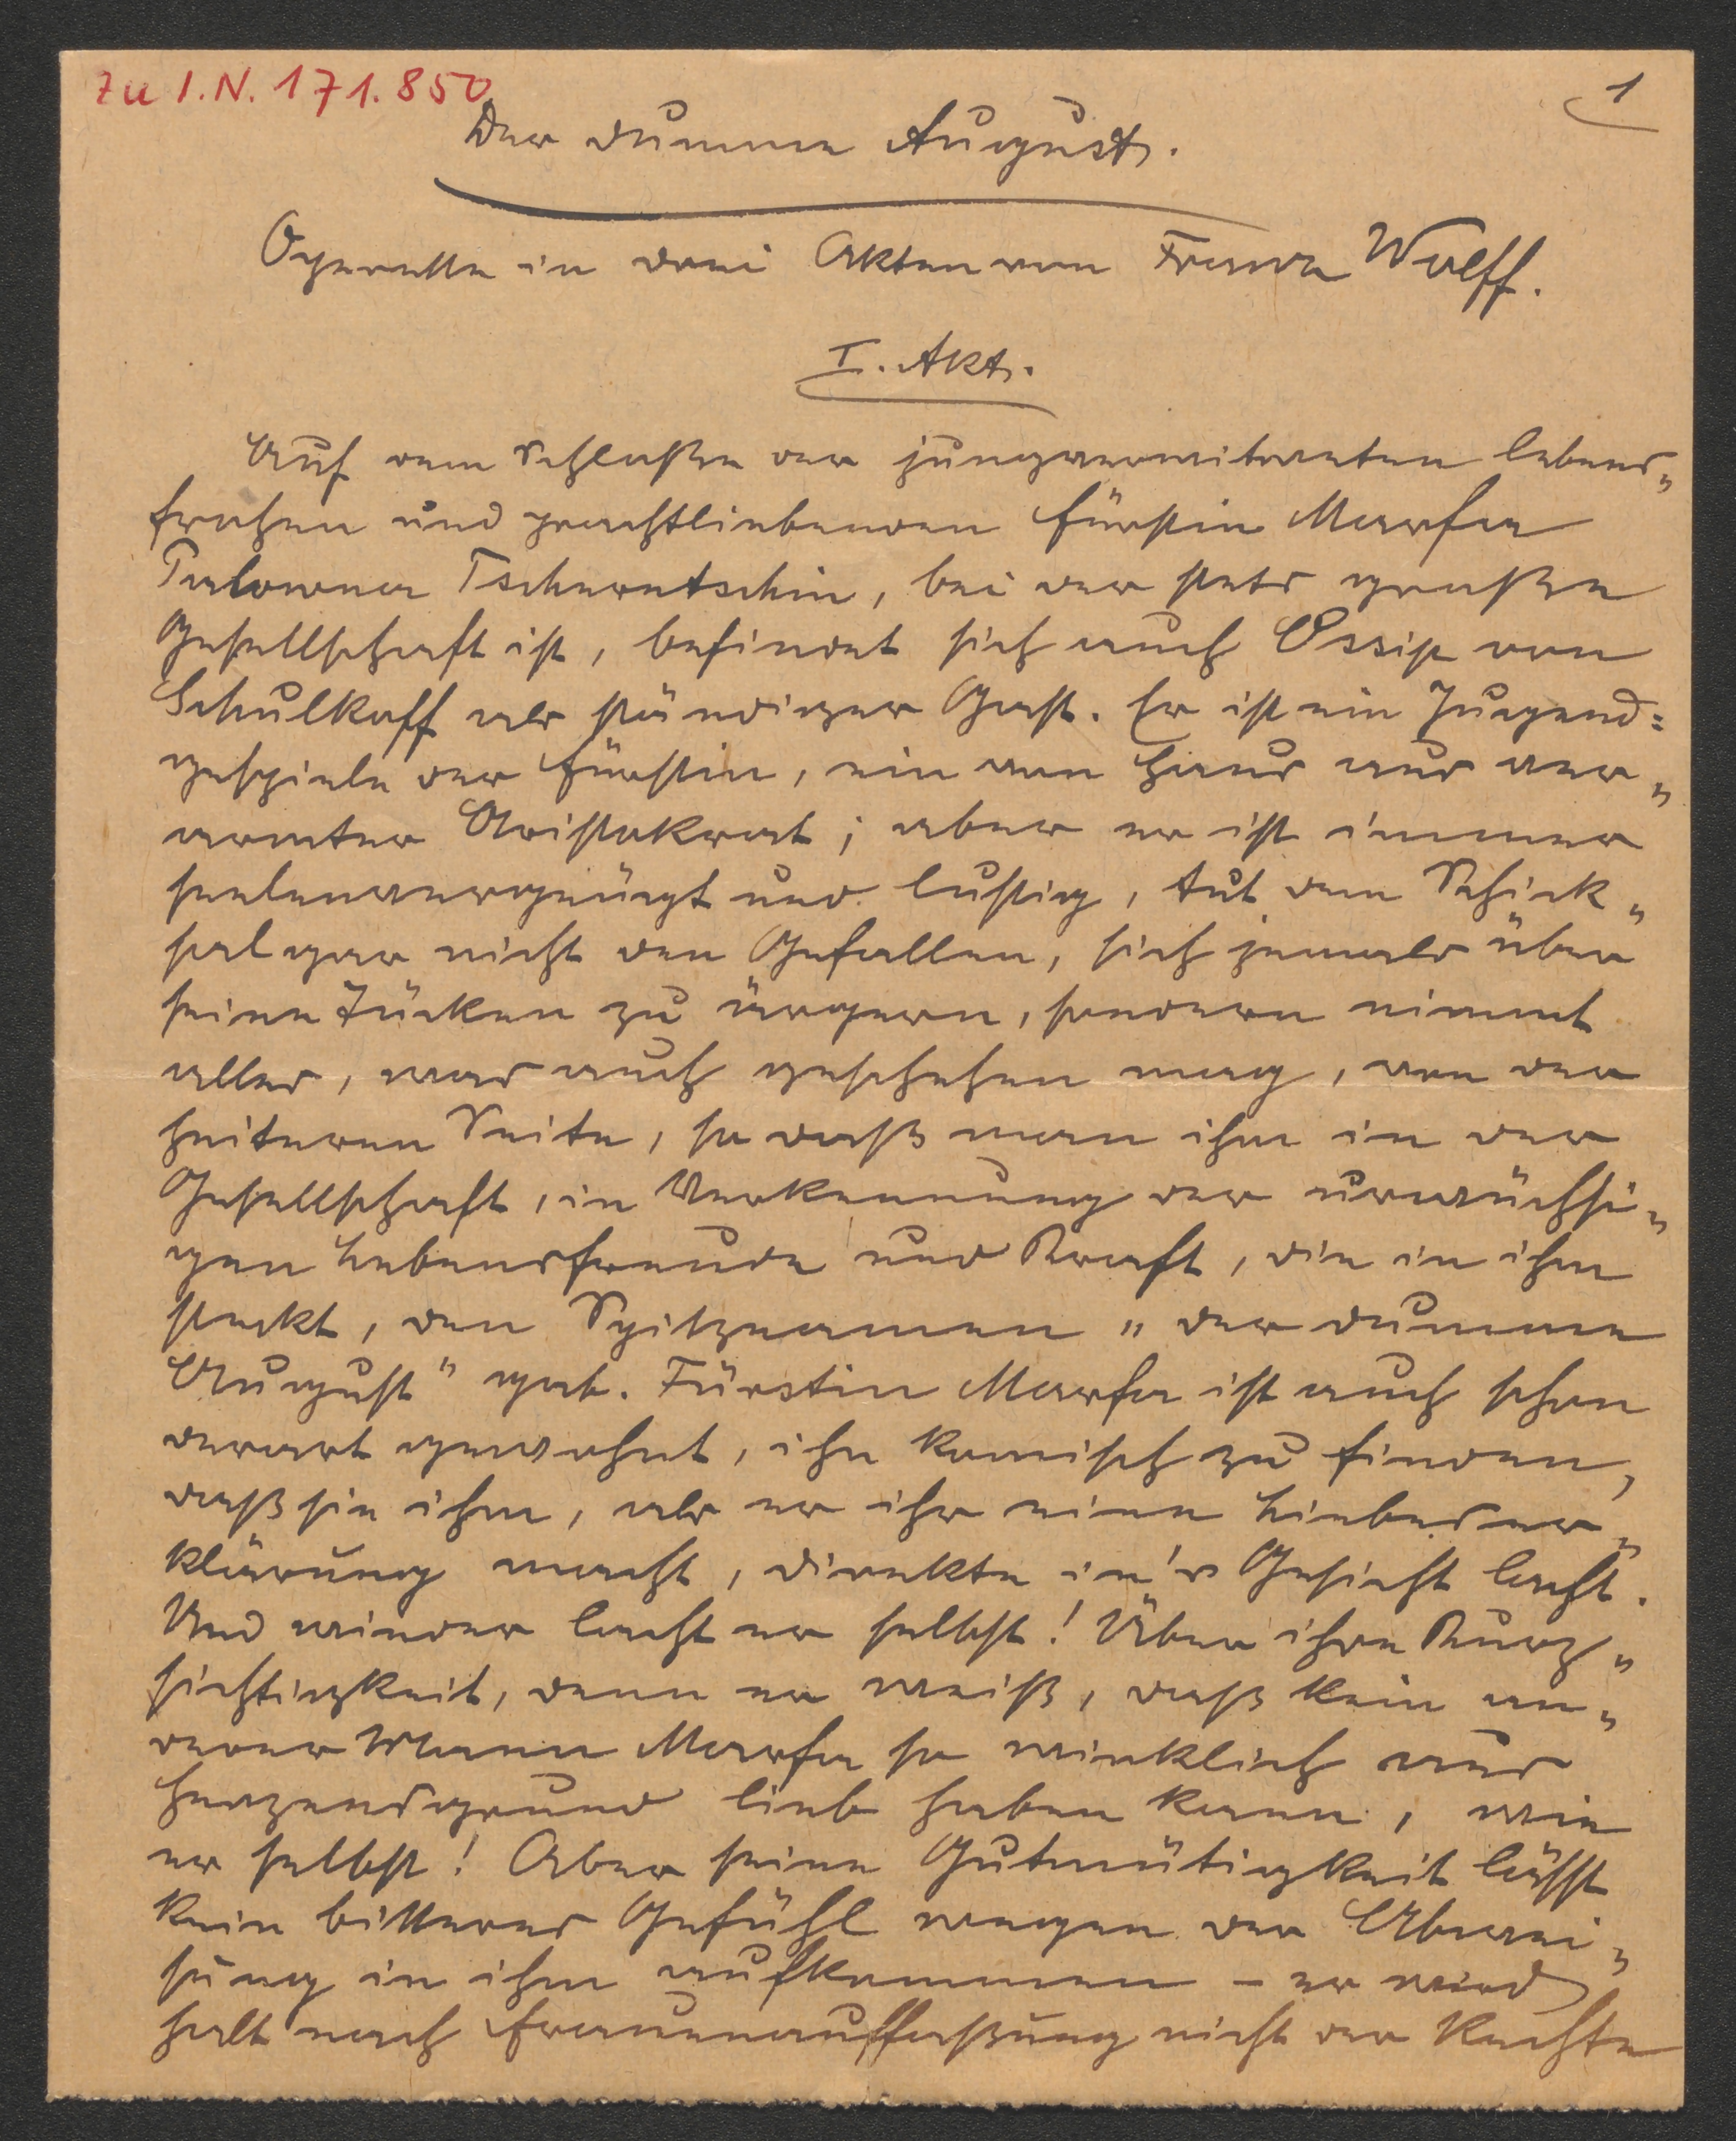 Zu I.N. 171.850
1
Der dumme August.
Operette in drei Akten von Franz Wolff.
I. Akt.
Auf dem Schloße der jungverwitweten lebens„
frohen und prachtliebenden Fürstin Marfa
Palowna Tscherntschin, bei der stets große
Gesellschaft ist, befindet sich auch Ossip von
Schulkoff als ständiger Gast. Er ist ein Jugend=
gespiele der Fürstin, ein von Haus aus ver„
armter Aristokrat; aber er ist immer
seelenvergnügt und lustig, tut dem Schick„
sal gar nicht den Gefallen, sich jemals über
seine Tücken zu ärgern, sondern nimmt
alles, was auch geschehen mag, von der
heiteren Seite, so daß man ihm in der
Gesellschaft, in Verkennung der urwüchsi„
gen Lebensfreude und Kraft, die in ihm
steckt, den Spitznamen „der dumme
August" gab. Fürstin Marfa ist auch schon
derart gewohnt, ihn komisch zu finden,
daß sie ihm, als er ihr eine Liebeser„
klärung macht, direkte in's Gesicht lacht.
Und wieder lacht er selbst! Über ihre Kurz„
sichtigkeit, denn er weiß, daß kein an„
derer Mann Marfa so wirklich aus
Herzensgrund lieb haben kann, wie
er selbst! Aber seine Gutmütigkeit läßt
kein bitteres Gefühl wegen der Abwei„
sung in ihm aufkommen – er wird
halt nach Frauenauffaßung nicht der Rechte